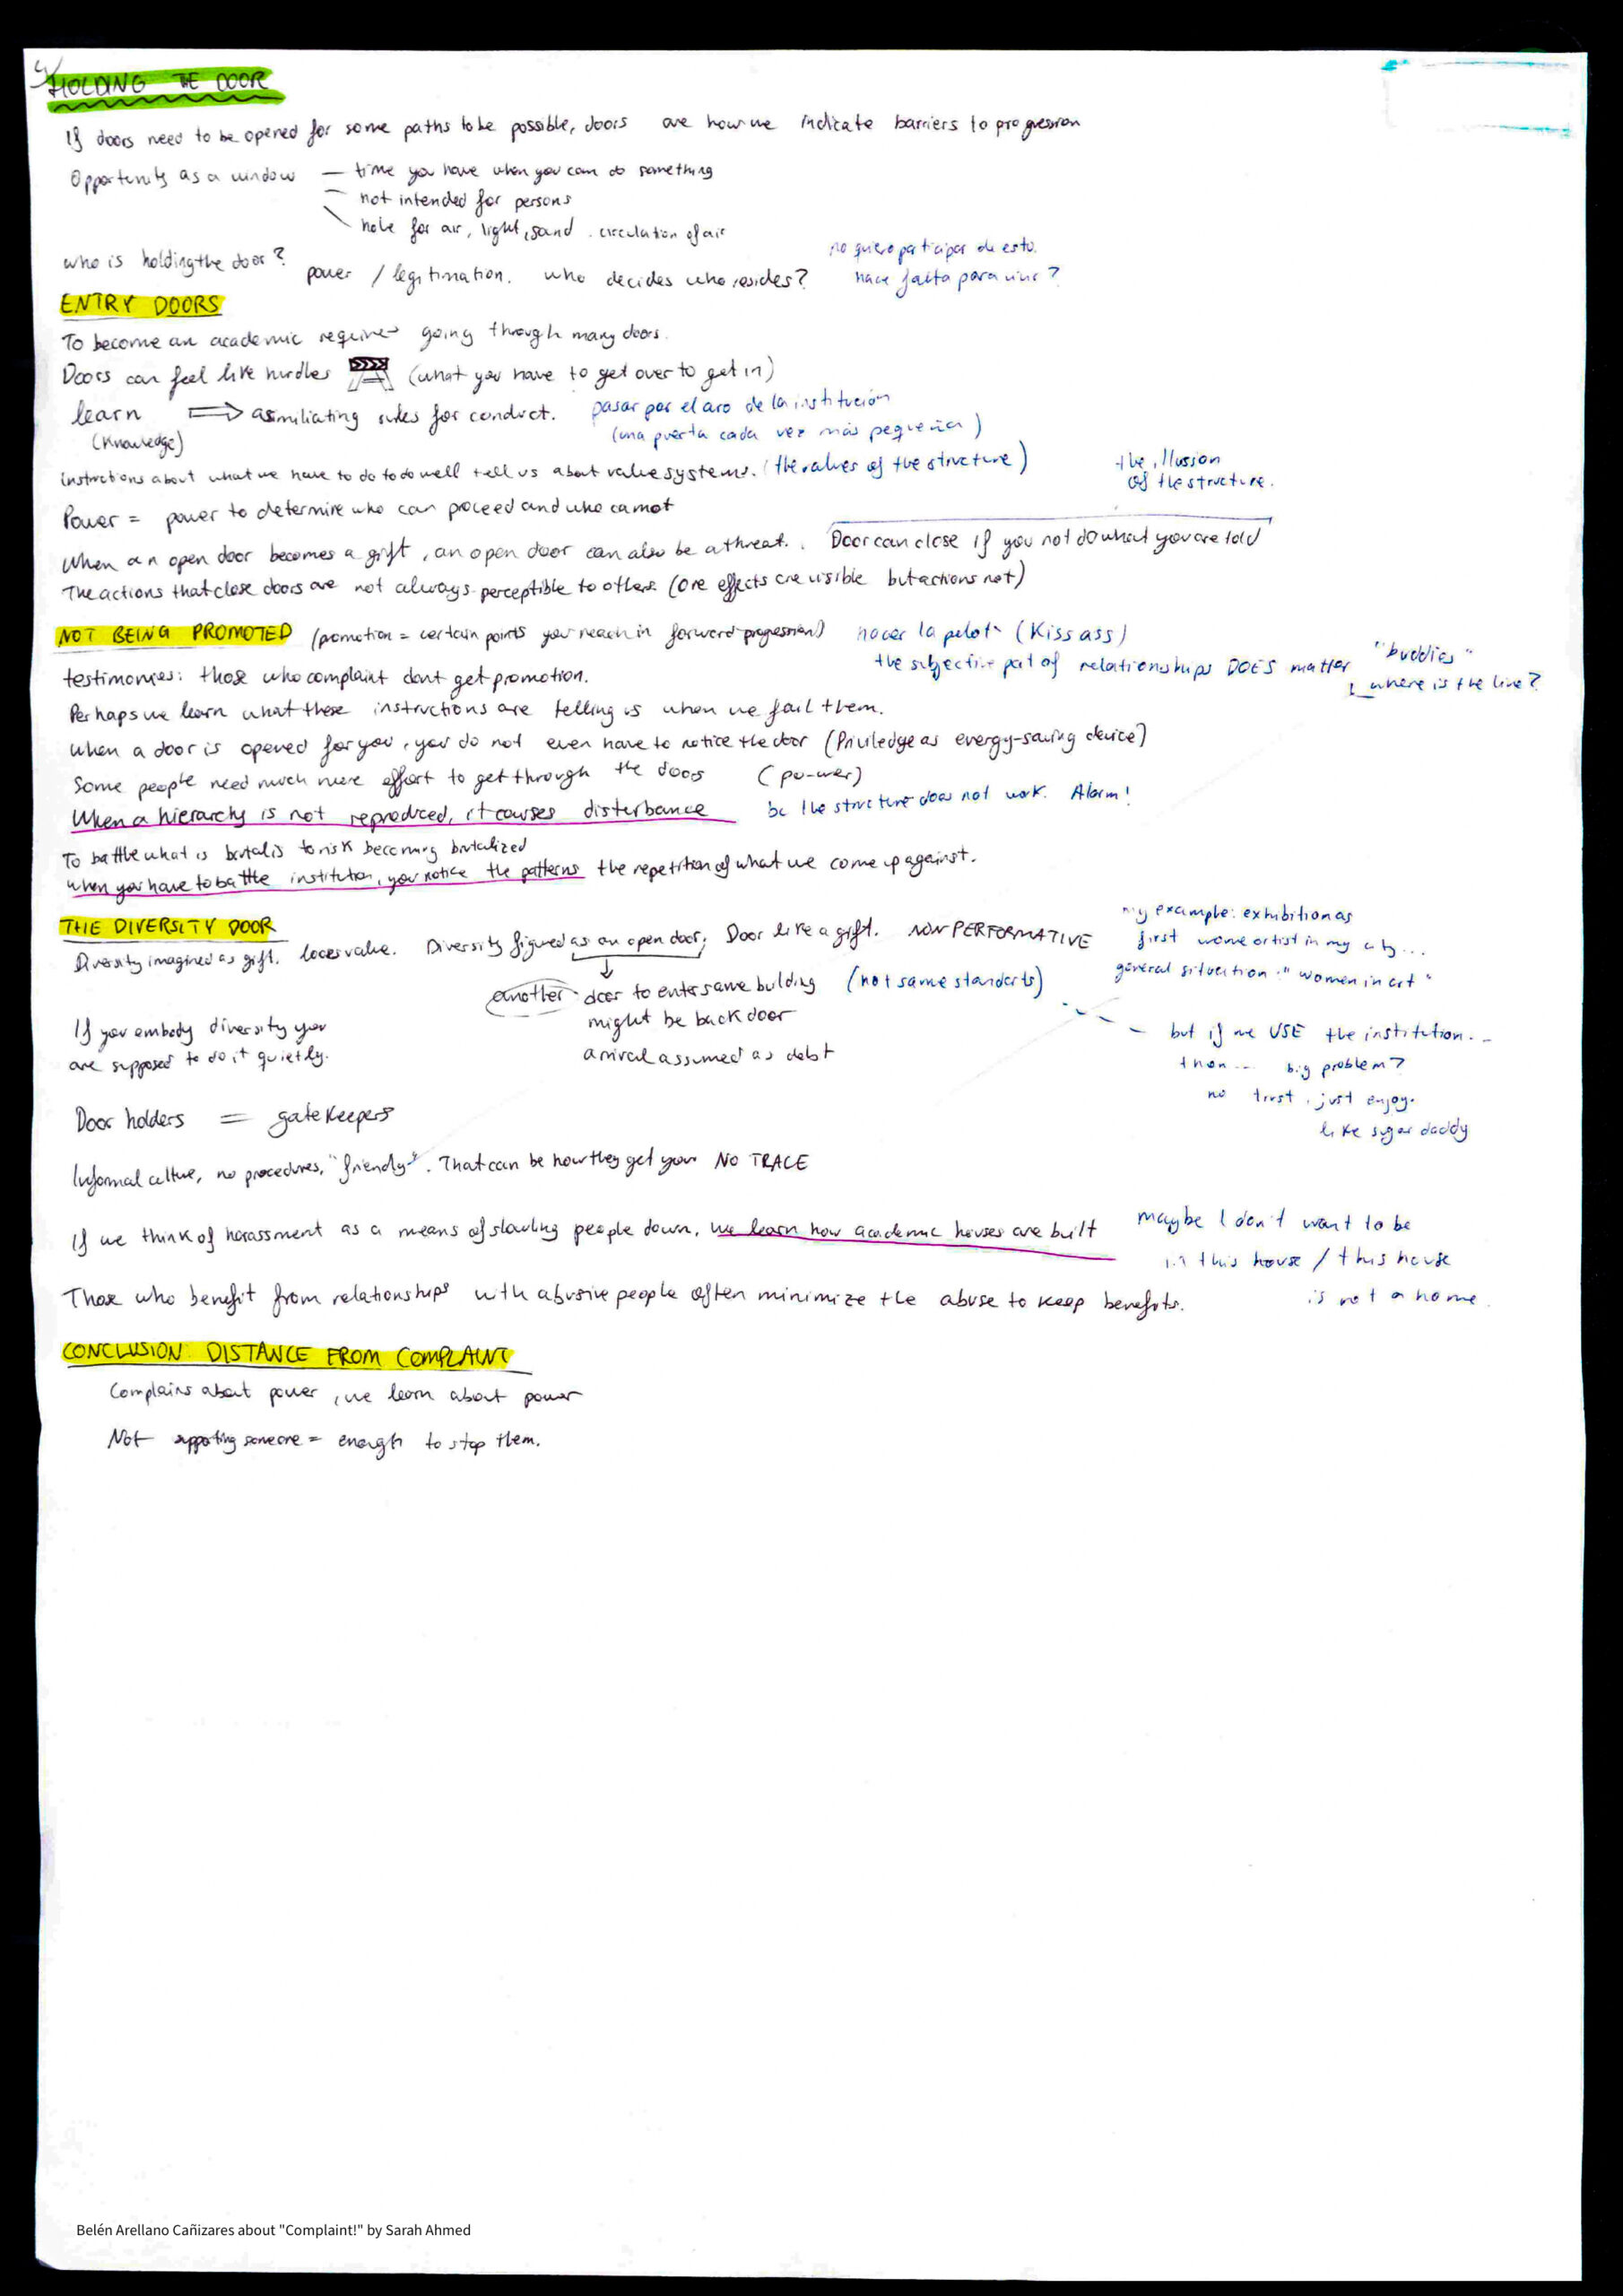 HOLDING THE DOOR
If doors need to be opened for some paths to be possible, doors are how we indicate barriers to progression
Opportunity as a window — time you have when you can do something
not intended for persons
hole for air, light, sand. circulation of air
who is holding the door?
power / legitimation. who decides who resides?
no quiero participar de esto.
hace falta para vivir?
ENTRY DOORS
To become an academic requires going through many doors.
Doors can feel like hurdles (what you have to get over to get in)
learn ⇒ assimiliating rules for conduct.
(knowledge)
pasar por el aro de la institución
(una puerta cada vez más pequeña)
instructions about what we have to do to do well tell us about value systems. (the values of the structure)
the illusion
of the structure.
Power = power to determine who can proceed and who cannot
When an open door becomes a gift, an open door can also be a threat. Door can close if you not do what you are told
The actions that close doors are not always perceptible to others (ore effects are visible but actions not)
NOT BEING PROMOTED (promotion = certain points you reach in forward progression) hacer la pelota (Kiss ass)
the subjective part of relationships DOES matter
"buddies"
where is the line?
testimonies: those who complaint dont get promotion.
Perhaps we learn what these instructions are telling us when we fail them.
when a door is opened for you, you do not even have to notice the door (Priviledge as energy-saving device)
Some people need much more effort to get through the doors (po-wer)
When a hierarchy is not reproduced, it causes disturbance bc the structure does not work. Alarm!
To battle what is brutal is to risk becoming brutalized
when you have to battle institution, you notice the patterns the repetition of what we come up against.
THE DIVERSITY DOOR
Diversity imagined as gift. loses value. Diversity figured as an open door; Door like a gift. NON PERFORMATIVE
another door to enter same bulding (not same standarts)
might be back door
arrival assumed as debt
my example: exhibition as
first wome artist in my city...
general situation: "women in art"
but if we USE the institution...
then... big problem?
no trust, just enjoy.
like sugar daddy
If you embody diversity you
are supposed to do it quietly.
Door holders = gatekeepers
Informal culture, no procedures, "friendly". That can be how they get you NO TRACE
If we think of harassment as a means of slowling people down, we learn how academic houses are built
maybe I don't want to be
in this house / this house
is not a home.
Those who benefit from relationships with abusive people often minimize the abuse to keep benefits.
CONCLUSION: DISTANCE FROM COMPLAINT
Complains about power, we learn about power
Not supporting someone = enough to stop them.
Belén Arellano Cañizares about "Complaint!" by Sarah Ahmed